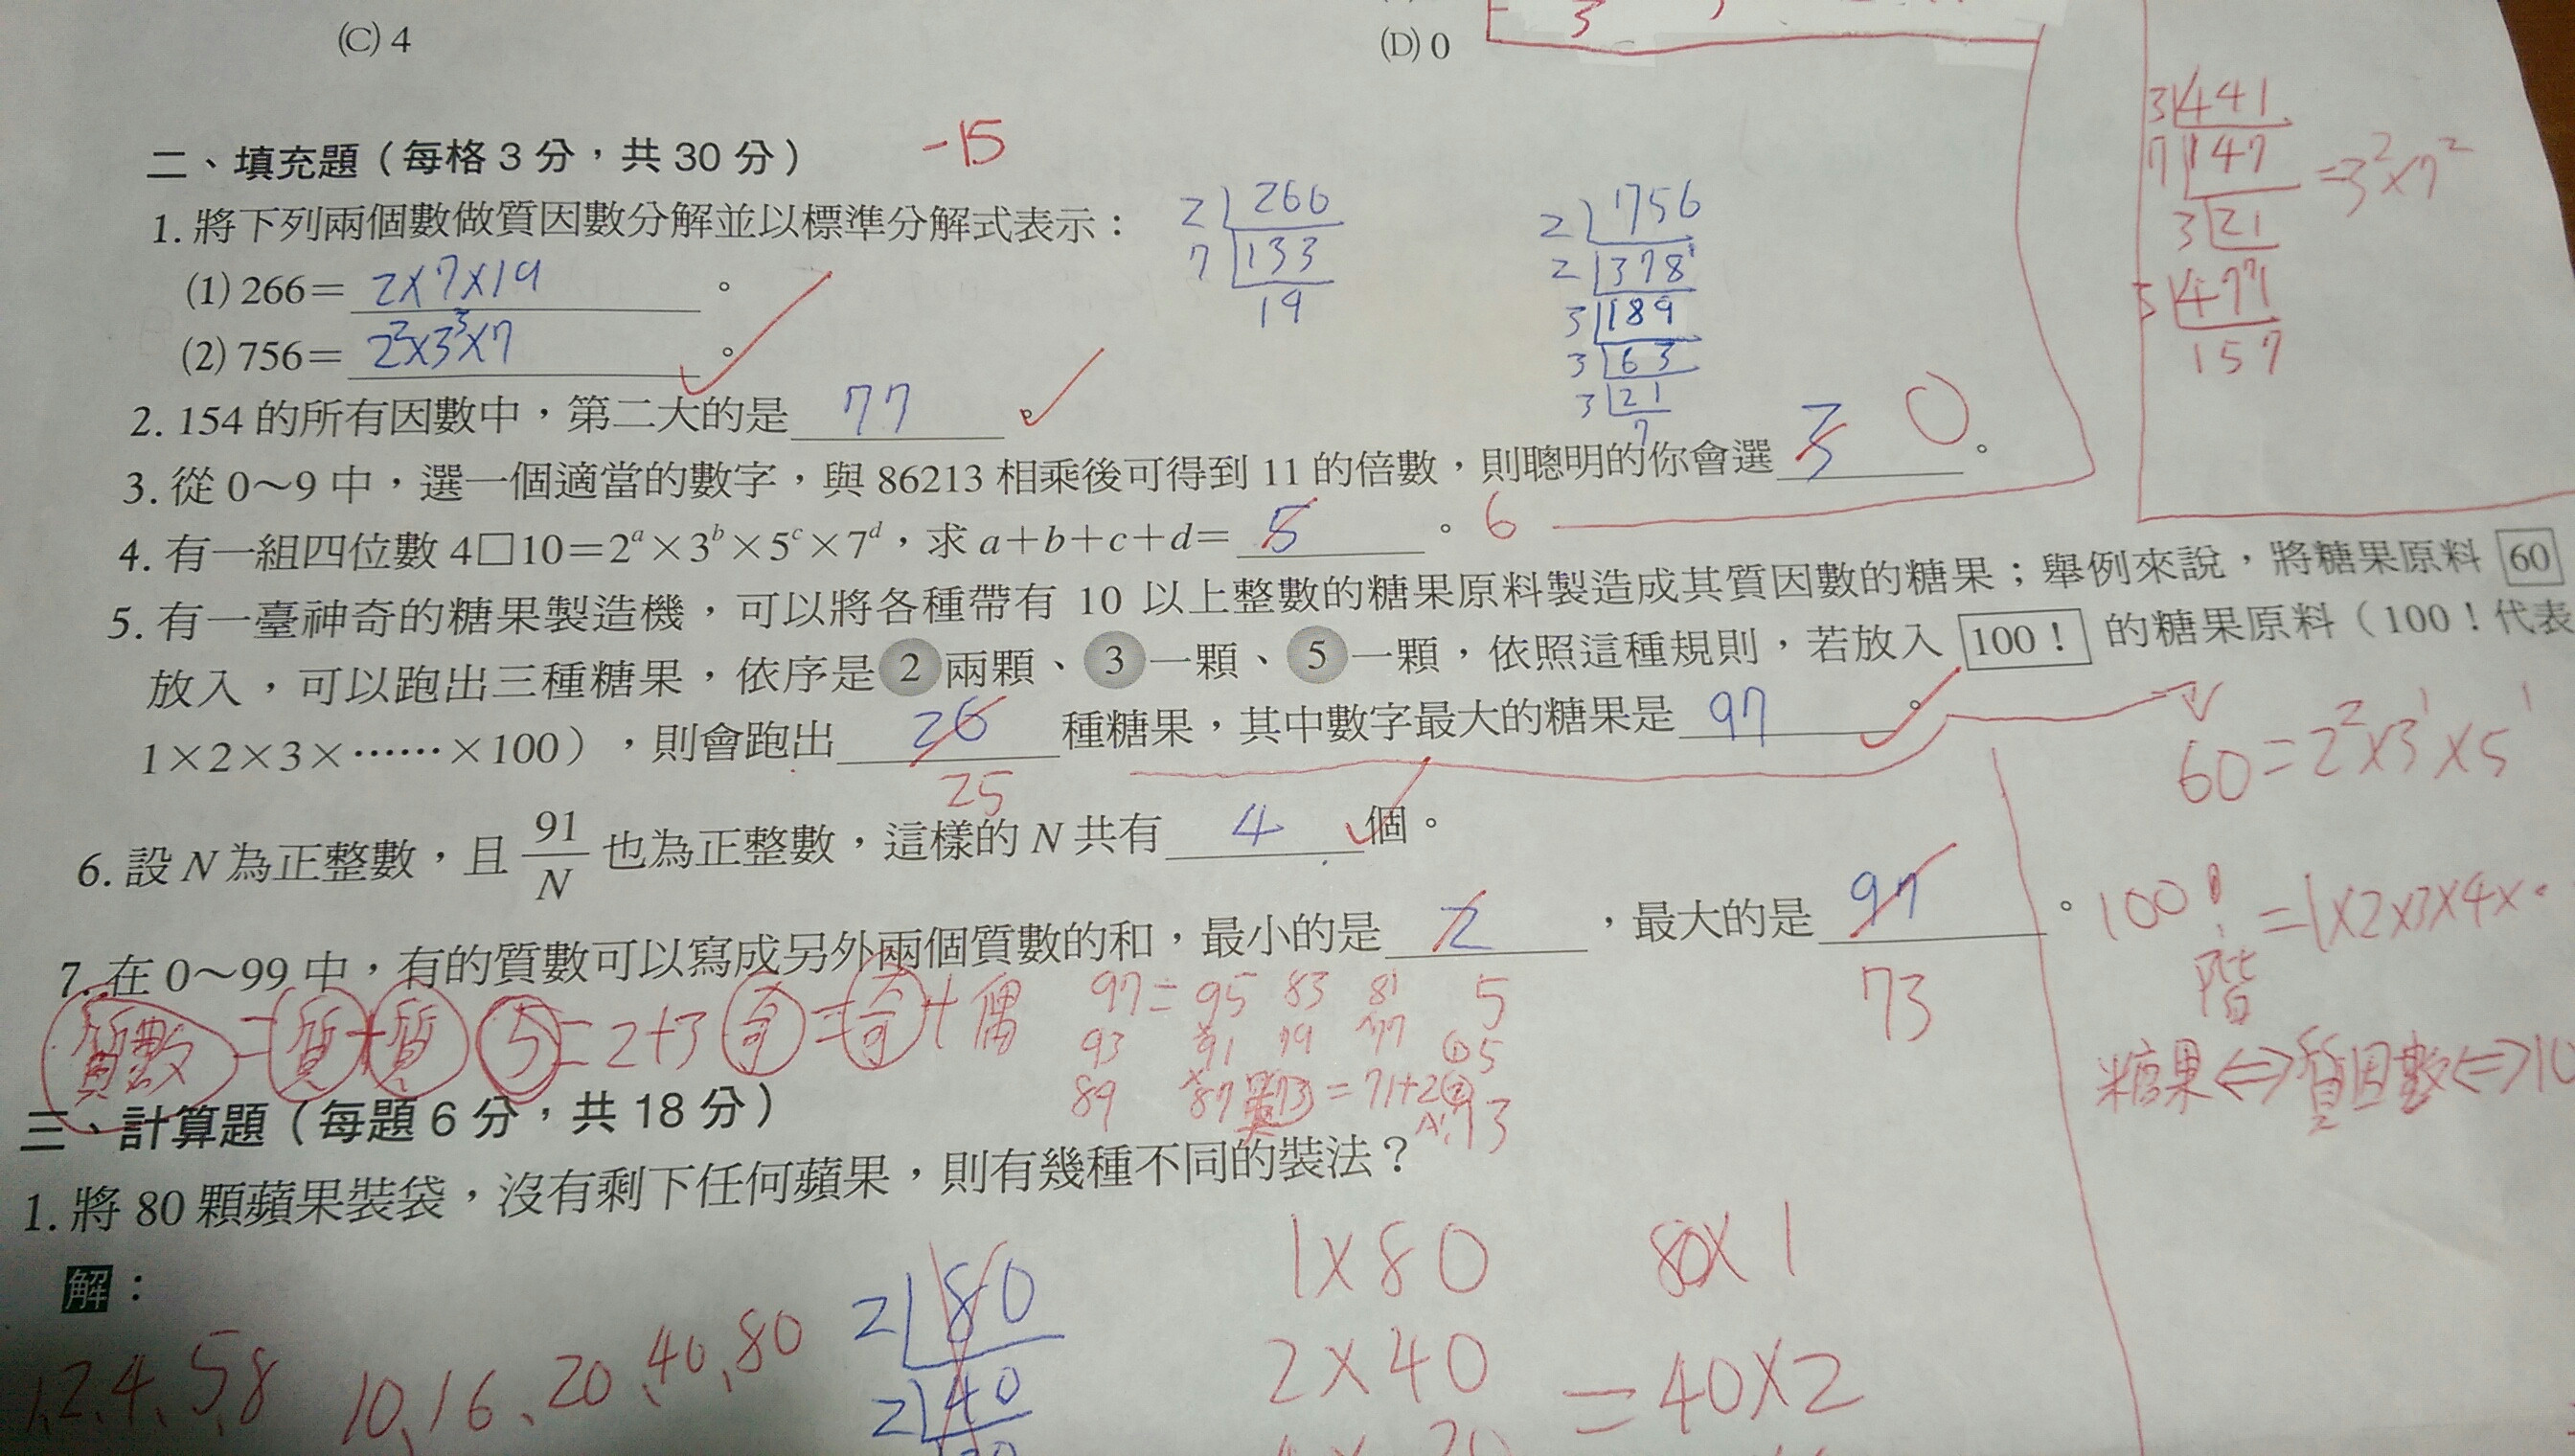 (C) 4
(D) 0
3
-15
二、填充題（每格 3 分，共 30 分）
1. 將下列兩個數做質因數分解並以標準分解式表示：
(1) 266＝ 2×7×19 。
(2) 756＝ 2²×3³×7 。
2 266
7 133
19
2 756
2 378
3 189
3 63
3 21
7
3 441
7 147 =3²×7²
3 21
3 471
157
2. 154 的所有因數中，第二大的是 77 。
3. 從 0～9 中，選一個適當的數字，與 86213 相乘後可得到 11 的倍數，則聰明的你會選 3 。 0
4. 有一組四位數 4□10＝2ᵃ×3ᵇ×5ᶜ×7ᵈ，求 a＋b＋c＋d＝ 5 。 6
5. 有一臺神奇的糖果製造機，可以將各種帶有 10 以上整數的糖果原料製造成其質因數的糖果；舉例來說，將糖果原料 60
放入，可以跑出三種糖果，依序是 2 兩顆、 3 一顆、 5 一顆，依照這種規則，若放入 100！ 的糖果原料（100！代表
1×2×3×……×100），則會跑出 26 種糖果，其中數字最大的糖果是 97 。
25
60=2²×3¹×5¹
6. 設 N 為正整數，且 91/N 也為正整數，這樣的 N 共有 4 個。
7. 在 0～99 中，有的質數可以寫成另外兩個質數的和，最小的是 2 ，最大的是 97 。
5
73
100! =1×2×3×4×
階
糖果⇔質因數⇔10
質數=質+質 5=2+3 奇=奇+偶
97= 95 83 81
93 91 79 77 ①5
89 87 73 =71+2 ②
A: 73
三、計算題（每題 6 分，共 18 分）
1. 將 80 顆蘋果裝袋，沒有剩下任何蘋果，則有幾種不同的裝法？
解：
1、2、4、5、8
10、16、20、40、80
2 80
2 40
1×80 80×1
2×40 = 40×2